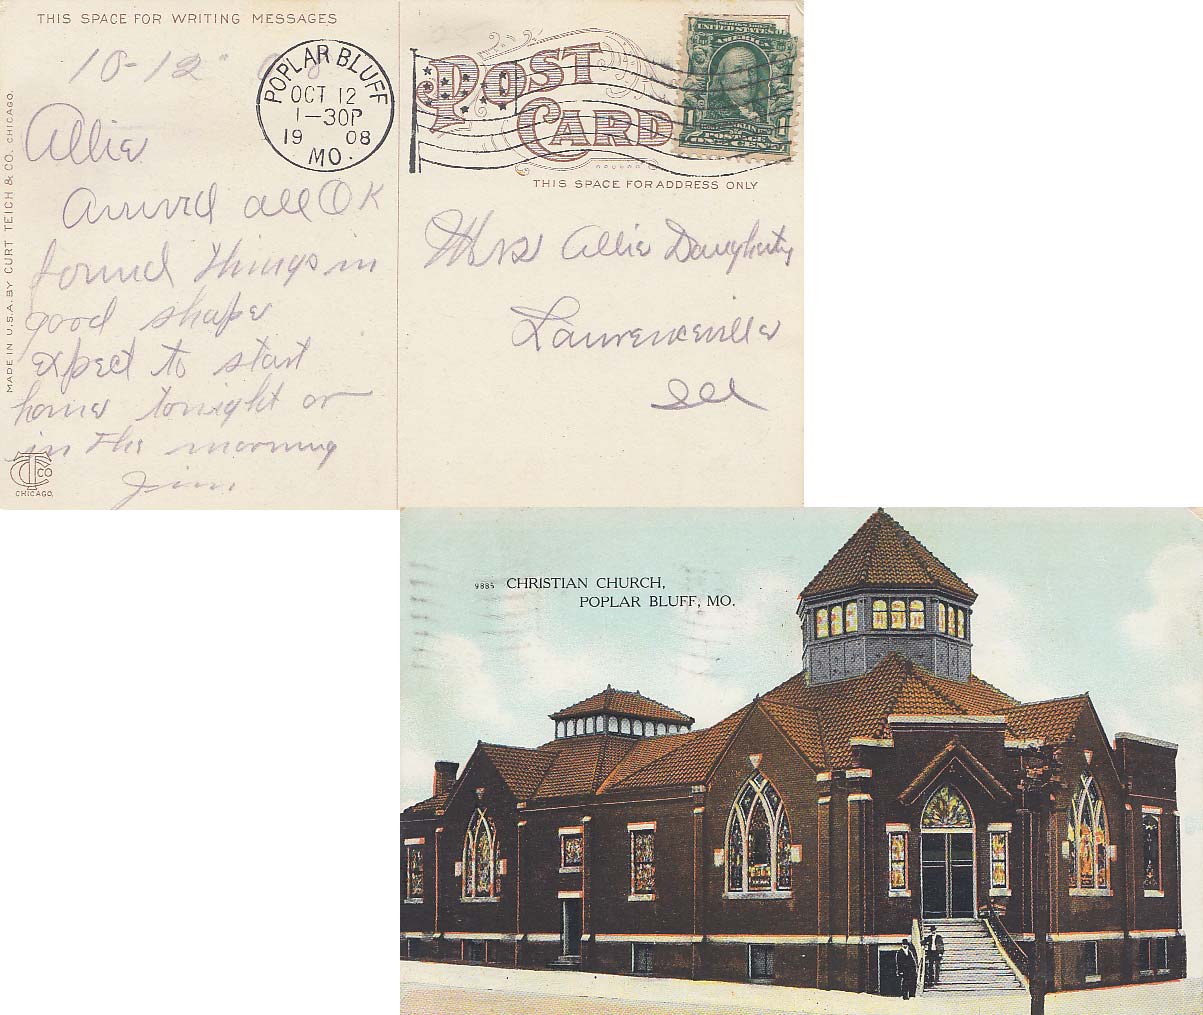 THIS SPACE FOR WRITING MESSAGES
10-12" 08
POPLAR BLUFF
OCT 12
1-30P
19 08
MO.
Allie
Arrived all OK
found things in
good shape
expect to start
home tonight or
in the morning
Jim
MADE IN U.S.A. BY CURT TEICH & CO. CHICAGO.
CTCO
CHICAGO.
POST
CARD
UNITED STATES OF
AMERICA
1 1
ONE CENT
THIS SPACE FOR ADDRESS ONLY
Mrs Allie Daugherty
Lawrenceville
Ill
9885 CHRISTIAN CHURCH,
POPLAR BLUFF, MO.